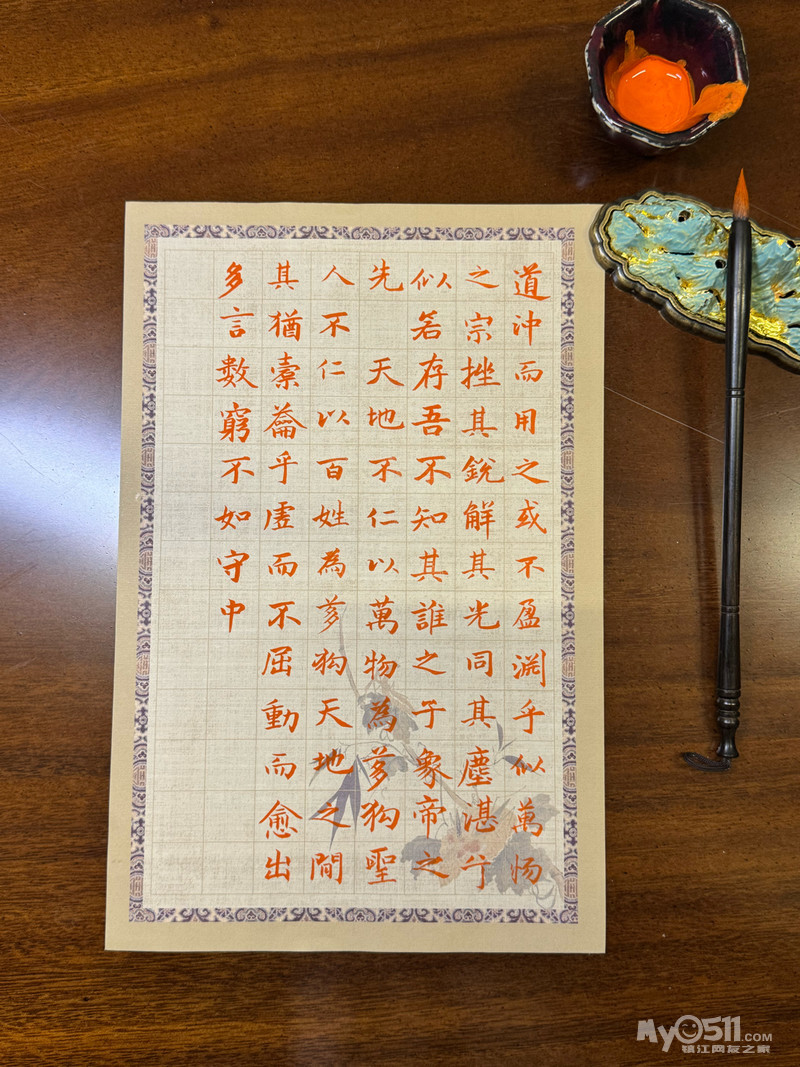 道沖而用之或不盈淵乎似萬物
之宗挫其銳解其光同其塵湛兮
似若存吾不知其誰之子象帝之
先 天地不仁以萬物為芻狗聖
人不仁以百姓為芻狗天地之間
其猶橐籥乎虛而不屈動而愈出
多言數窮不如守中
My0511.COM
镇江网友之家